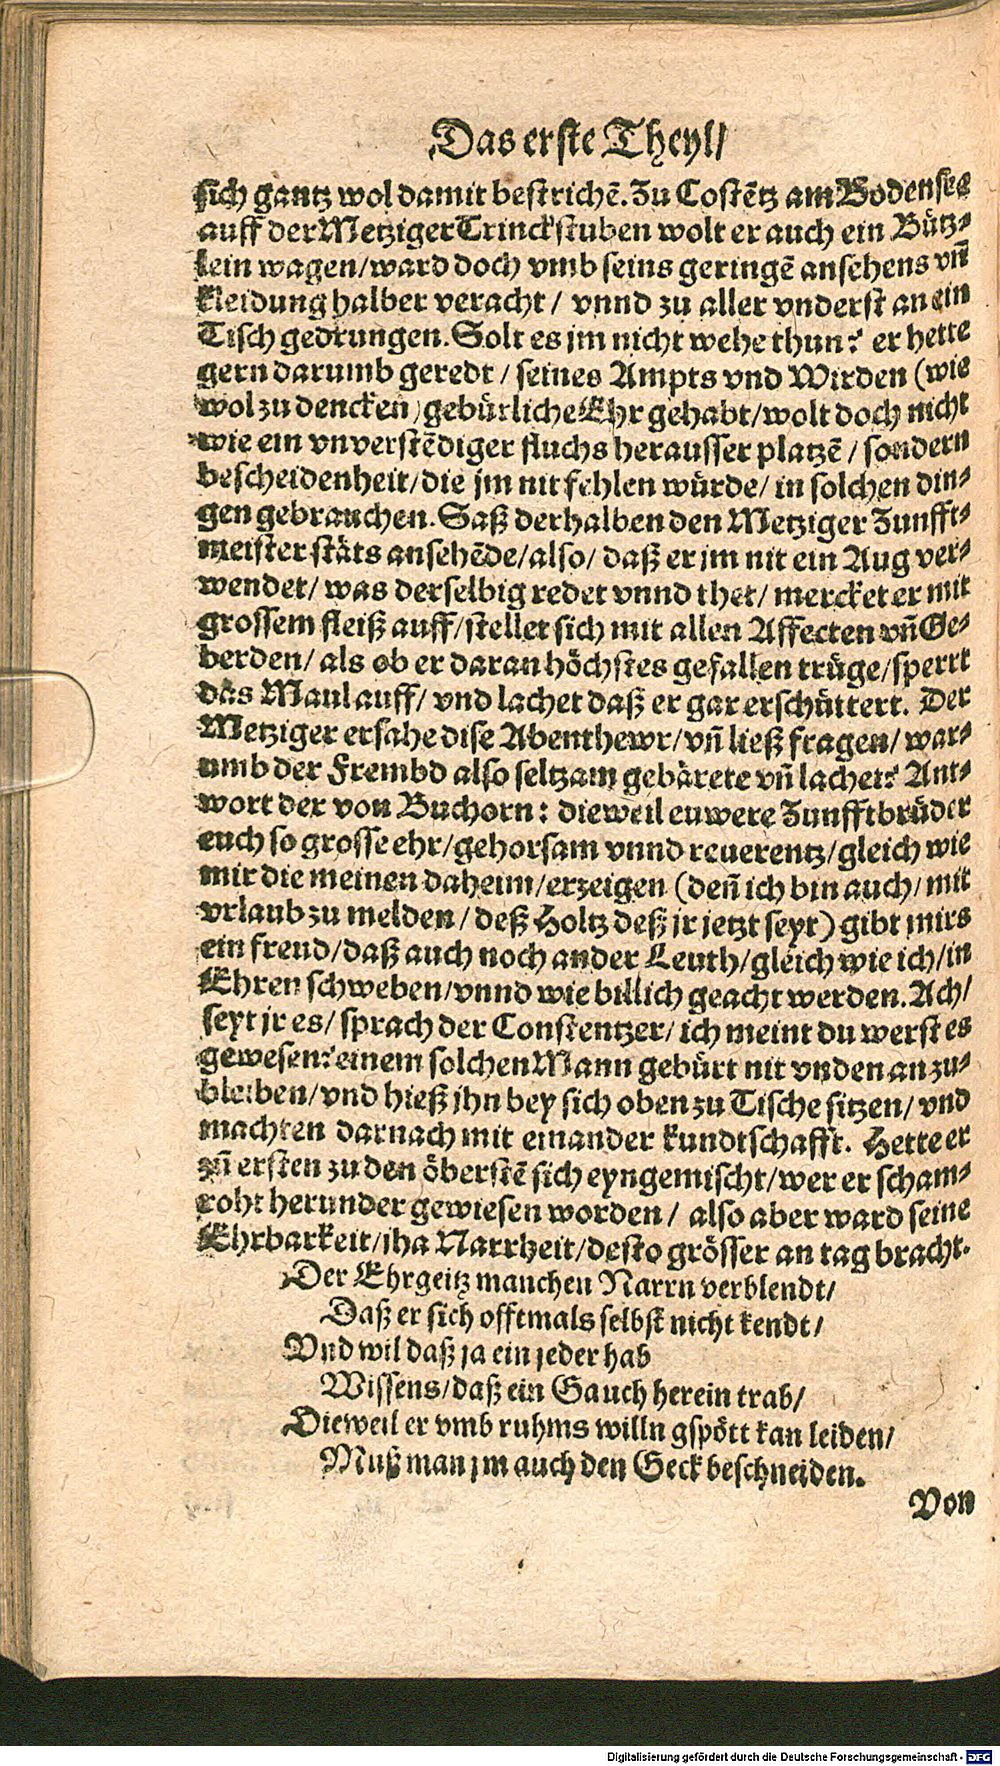 Das erste Theyl/
sich gantz wol damit bestrichē. Zu Costētz am Bodensee
auff der Metziger Trinckstuben wolt er auch ein Bütz-
lein wagen/ward doch vmb seins geringē ansehens vñ
kleidung halber veracht/ vnnd zu aller vnderst an ein
Tisch gedrungen. Solt es jm nicht wehe thun? er hette
gern darumb geredt/ seines Ampts vnd Wirden (wie
wol zu dencken) gebürliche Ehr gehabt/wolt doch nicht
wie ein vnverstēdiger fluchs herausser platzē/ sondern
bescheidenheit/die jm nit fehlen würde/ in solchen din-
gen gebrauchen. Saß derhalben den Metziger Zunfft-
meister stäts ansehēde/also/ daß er jm nit ein Aug ver-
wendet/ was derselbig redet vnnd thet/ mercket er mit
grossem fleiß auff/stellet sich mit allen Affecten vñ Ge-
berden/ als ob er daran höchstes gefallen trüge/sperrt
das Maul auff/ vnd lachet daß er gar erschüttert. Der
Metziger ersahe dise Abenthewr/vñ ließ fragen/ war-
umb der Frembd also seltzam gebärete vñ lachet? Ant-
wort der von Buchorn: dieweil euwere Zunfftbrüder
euch so grosse ehr/gehorsam vnnd reuerentz/gleich wie
mir die meinen daheim/erzeigen (deñ ich bin auch/ mit
vrlaub zu melden/ deß Holtz deß jr jetzt seyt) gibt mirs
ein freud/daß auch noch ander Leuth/gleich wie ich/in
Ehren schweben/vnnd wie billich geacht werden. Ach/
seyt jr es/ sprach der Constentzer/ ich meint du werst es
gewesen? einem solchen Mann gebürt nit vnden an zu-
bleiben/vnd hieß jhn bey sich oben zu Tische sitzen/ vnd
machten darnach mit einander kundtschafft. Hette er
zū ersten zu den öberstē sich eyngemischt/wer er scham-
roht herunder gewiesen worden/ also aber ward seine
Ehrbarkeit/jha Narrheit/desto grösser an tag bracht.
Der Ehrgeitz manchen Narrn verblendt/
Daß er sich offtmals selbst nicht kendt/
Vnd wil daß ja ein jeder hab
Wissens/daß ein Gauch herein trab/
Dieweil er vmb ruhms willn gspött kan leiden/
Muß man jm auch den Geck beschneiden.
Von
Digitalisierung gefördert durch die Deutsche Forschungsgemeinschaft - DFG